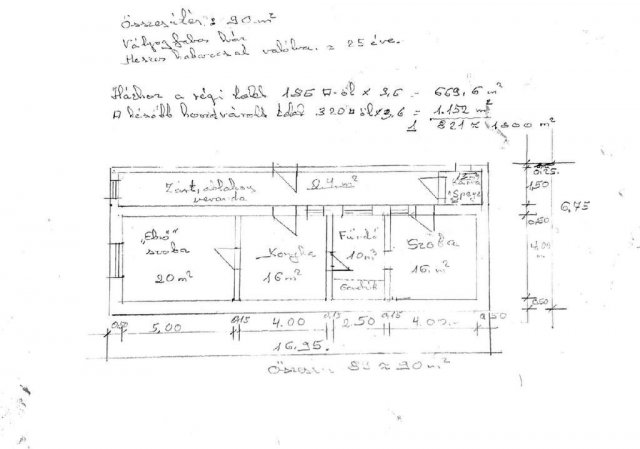 Összesítés: 90 m²
Vályogfalas ház
Meszes habarccsal vakolva. = 25 éve.
Házhoz a régi telek 186 □-öl x 3,6 = 669,6 m²
A később hozzávásárolt telek 320 □-öl x 3,6 = 1.152 m²
1821 ≈ 1800 m²
Zárt, ablakos
veranda
24 m²
Spájz
0.25
1,50
0,50
4,00
0,50
6,75
„Első”
szoba
20 m²
Konyha
16 m²
Fürdő
10 m²
Gardrób
Szoba
16 m²
0,50
5,00
0,15
4.00
0,15
2.50
0,15
4.00
0,50
16,95.
Összesen: 89 ≈ 90 m²